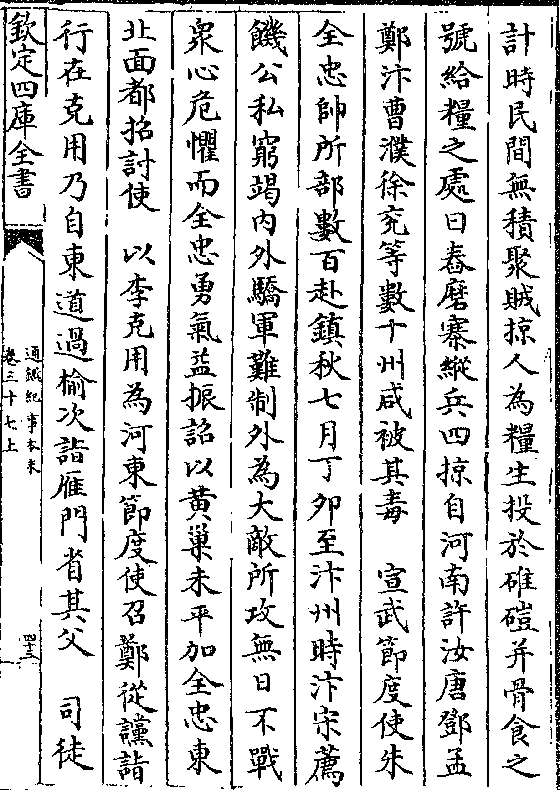 計時民間無積聚賊掠人為糧生投於碓磑并骨食之
號給糧之處曰舂磨寨縱兵四掠自河南許汝唐鄧孟
鄭汴曹濮徐兖等數十州咸被其毒　宣武節度使朱
全忠帥所部數百赴鎮秋七月丁夘至汴州時汴宋薦
饑公私窮竭内外驕軍難制外為大敵所攻無日不戰
衆心危懼而全忠勇氣益振詔以黄巢未平加全忠東
北面都招討使　以李克用為河東節度使召鄭從讜詣
行在克用乃自東道過榆次詣雁門省其父　司徒
欽定四庫全書
通鑑紀事本末
卷三十七上
四十三